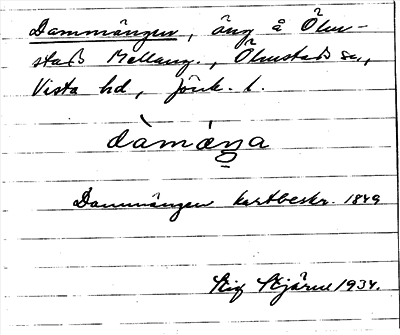 Dammängen, äng å Ölm-
stads Mellang., Ölmstads sn,
Vista hd, Jönk. l.
dàmæŋa
Dammängen kartbeskr. 1849
Stig Stjärne 1934.